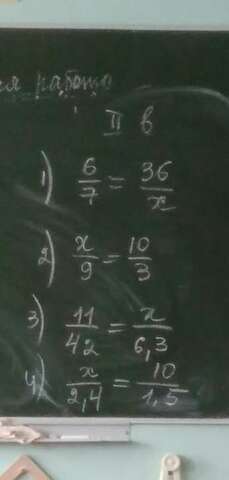 работа
II в
1) 6/7 = 36/x
2) x/9 = 10/3
3) 11/42 = x/6,3
4) x/2,4 = 10/1,5